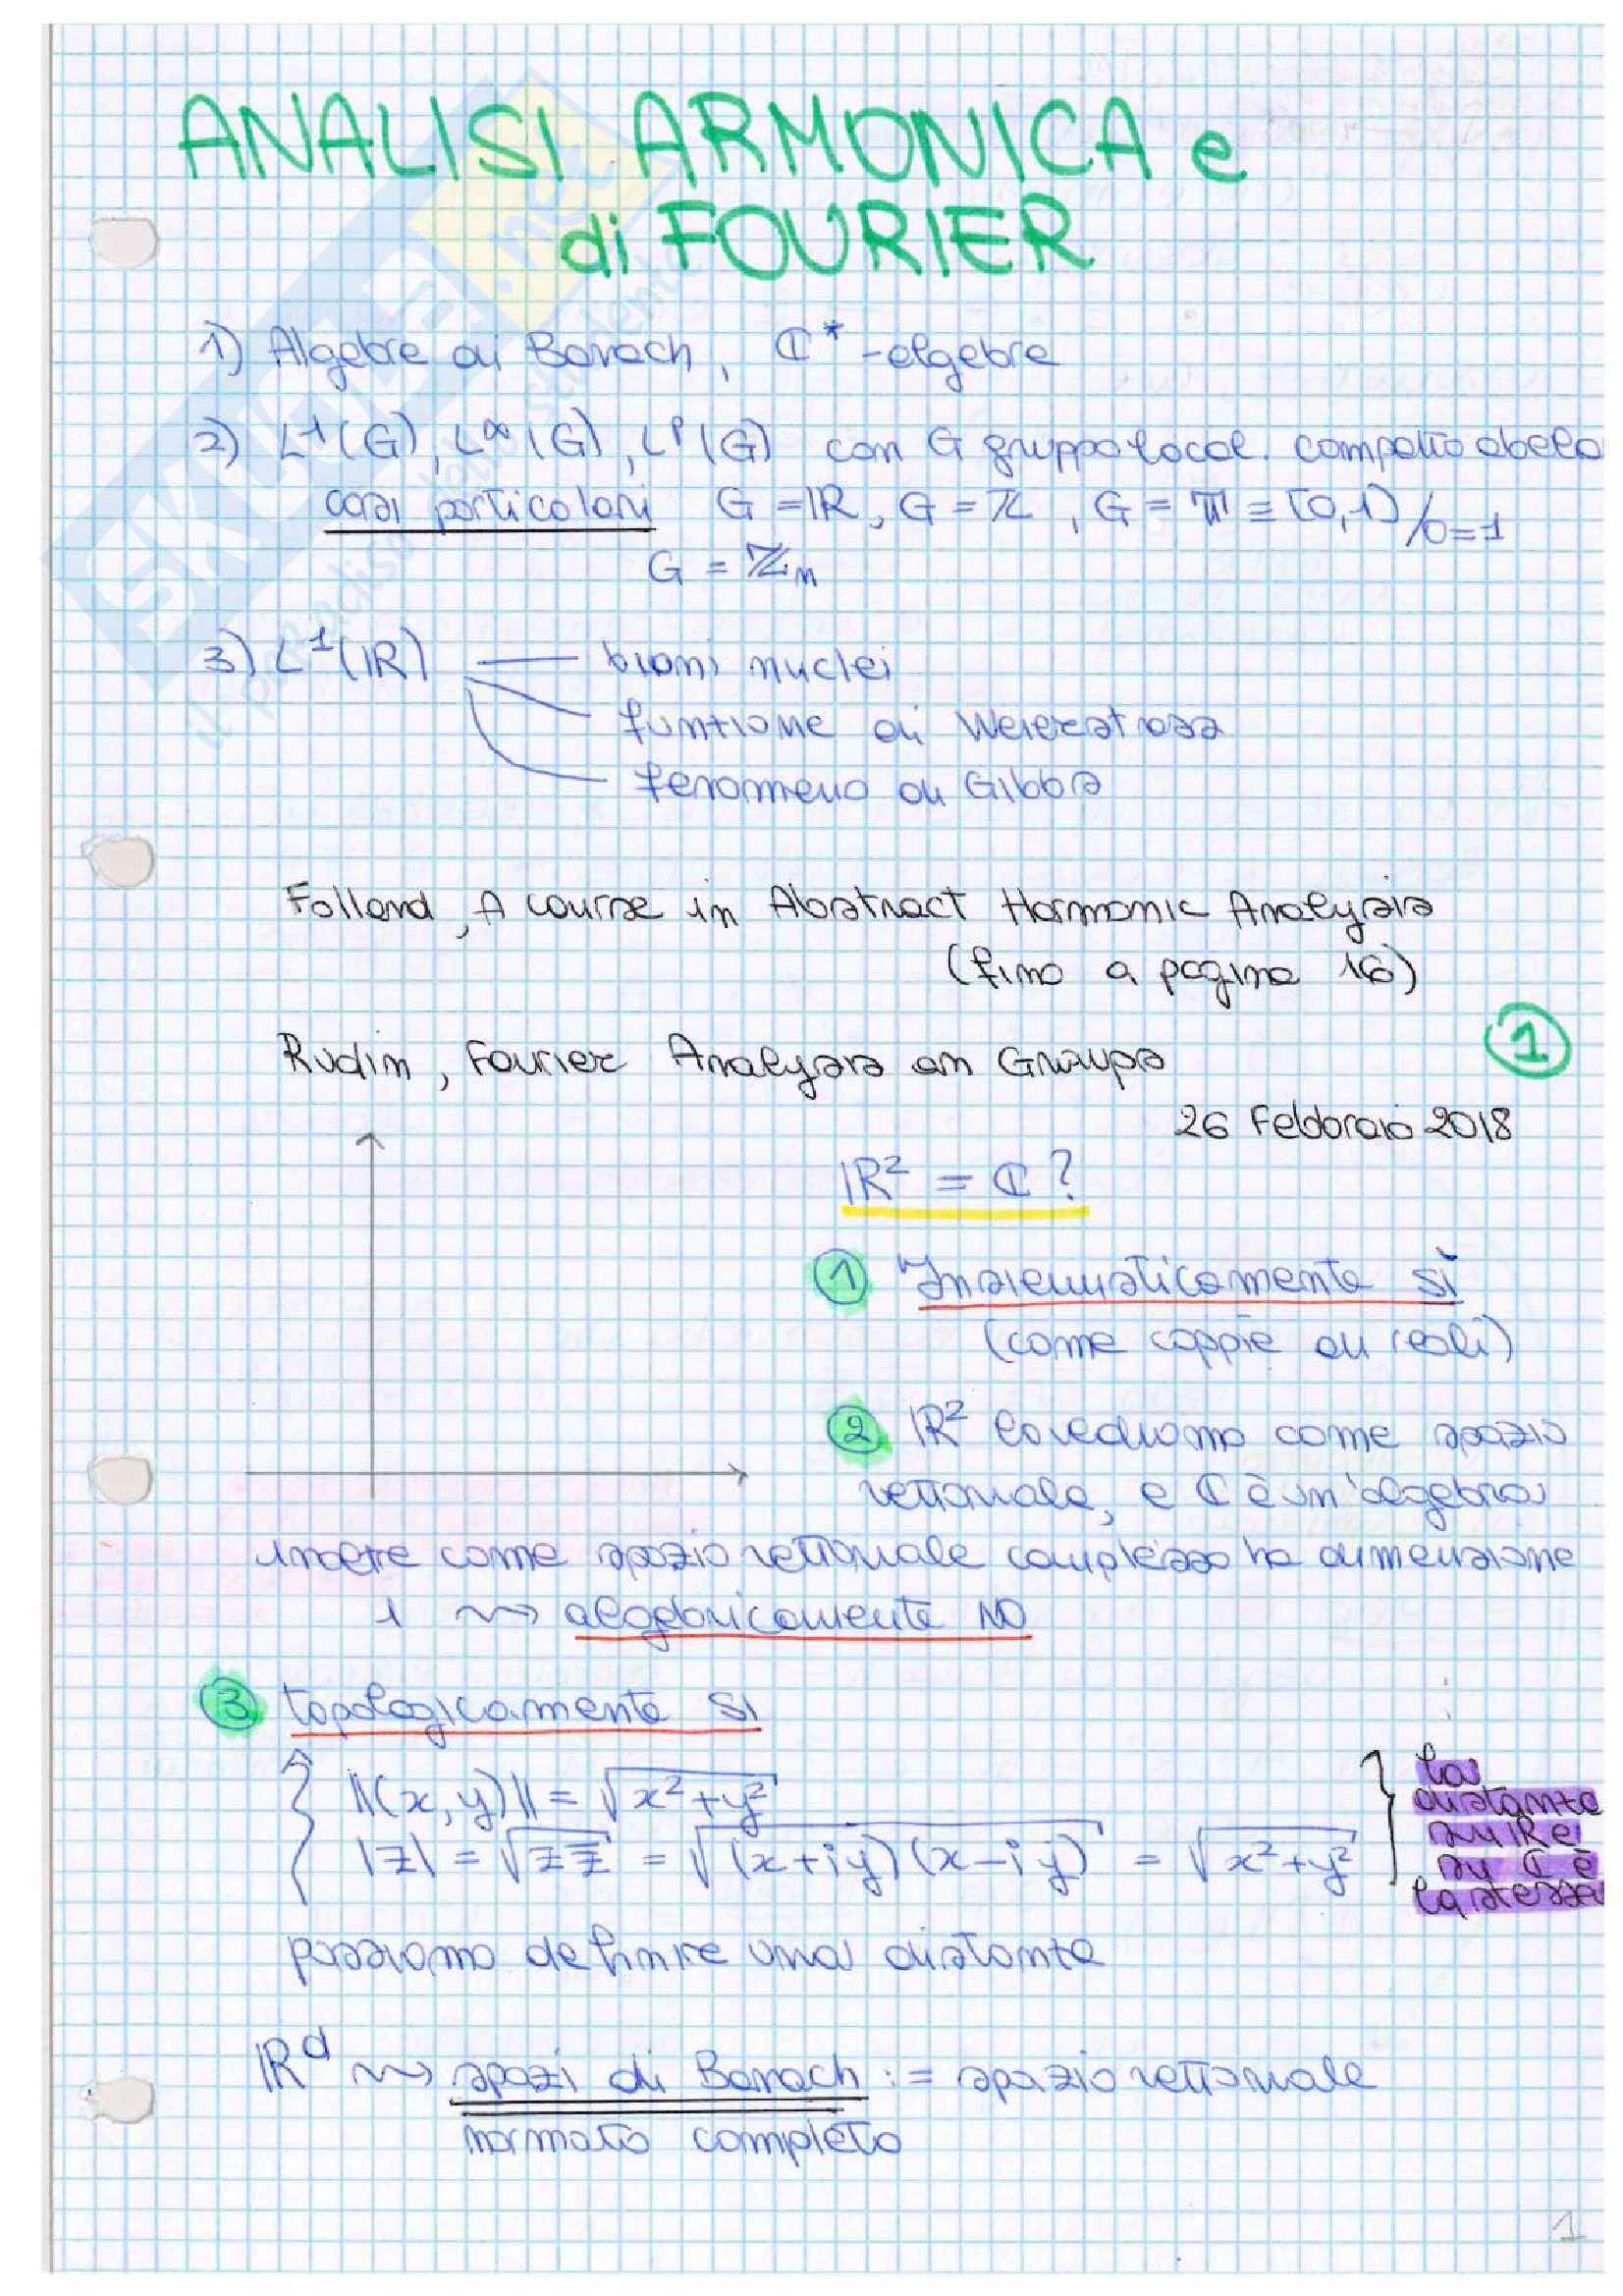 ANALISI ARMONICA e
di FOURIER
1) Algebre di Banach, ℂ*-algebre
2) L¹(G), L^∞(G), L^p(G) con G gruppo local. compatto abela
casi particolari G = ℝ, G = ℤ, G = 𝕋 ≡ [0,1]/0=1
G = ℤₙ
3) L¹(ℝ) buoni nuclei
funzione di Weierstrass
fenomeno di Gibbs
Folland, A course in Abstract Harmonic Analysis
(fino a pagina 16)
Rudin, Fourier Analysis on Groups
1
26 Febbraio 2018
ℝ² = ℂ ?
1 Insiemisticamente sì
(come coppie di reali)
2 ℝ² lo vediamo come spazio
vettoriale, e ℂ è un'algebra
inoltre come spazio vettoriale complesso ha dimensione
1 ⇝ algebricamente NO
3 topologicamente sì
‖(x,y)‖ = √(x²+y²)
|z| = √(z z̄) = √((x+iy)(x−iy)) = √(x²+y²)
la
distanza
su ℝ e
su ℂ è
la stessa
possiamo definire una distanza
ℝ^d ⇝ spazi di Banach := spazio vettoriale
normato completo
1
SKUOLA.net